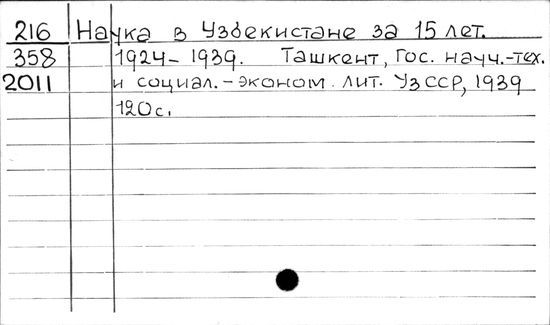 216 Наука в Узбекистане за 15 лет.
358 1924-1939. Ташкент, Гос. науч.-тех.
2011 и социал.-эконом. лит. УзССР, 1939
120с.